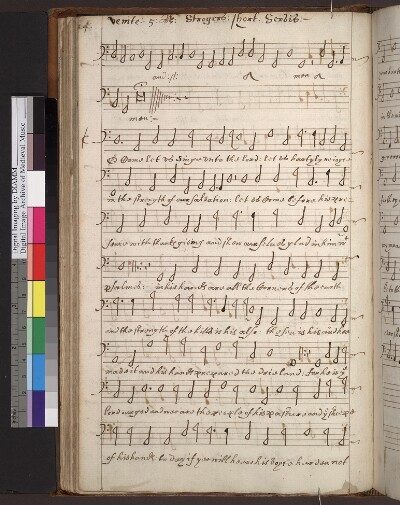 Venite: 5: Strogers: short. Servis:—
and: st: a men a
men:—
O Come let us singe unto the lord: let us hartyly reioyce
in the strength of our salvation: let us Come before his pre:
sence with thanksgiving and shew our selves glad in him wt
psalmes: in his hands are all the Corners of the earth:
and the strength of the hills is his also: the sea is his and hee
made it and his hands prepared the drie land: for he is ye
lord our god and we are the people of his pasture and ye sheepe
of his hands to day if yee will heare his voyce harden not
Digital Imaging by DIAMM
Digital Image Archive of Medieval Music